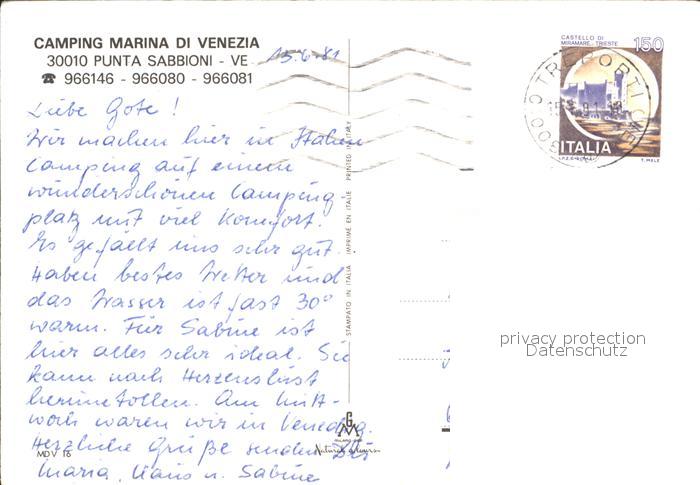 CAMPING MARINA DI VENEZIA
30010 PUNTA SABBIONI - VE
☎ 966146 - 966080 - 966081
15.6.81
Liebe Gote!
Wir machen hier in Italien
Camping auf einem
wunderschönen Camping-
platz mit viel Komfort.
Es gefällt uns sehr gut.
Haben bestes Wetter und
das Wasser ist fast 30°
warm. Für Sabine ist
hier alles sehr ideal. Sie
kann nach Herzenslust
herumtollen. Am Mitt-
woch waren wir in Venedig.
Herzliche Grüße senden Dir
Maria, Hans u. Sabine
MDV 16
STAMPATO IN ITALIA IMPRIME EN ITALIE PRINTED IN ITALY
CASTELLO DI
MIRAMARE, TRIESTE
150
ITALIA
T. MELE
TREPORTI
privacy protection
Datenschutz